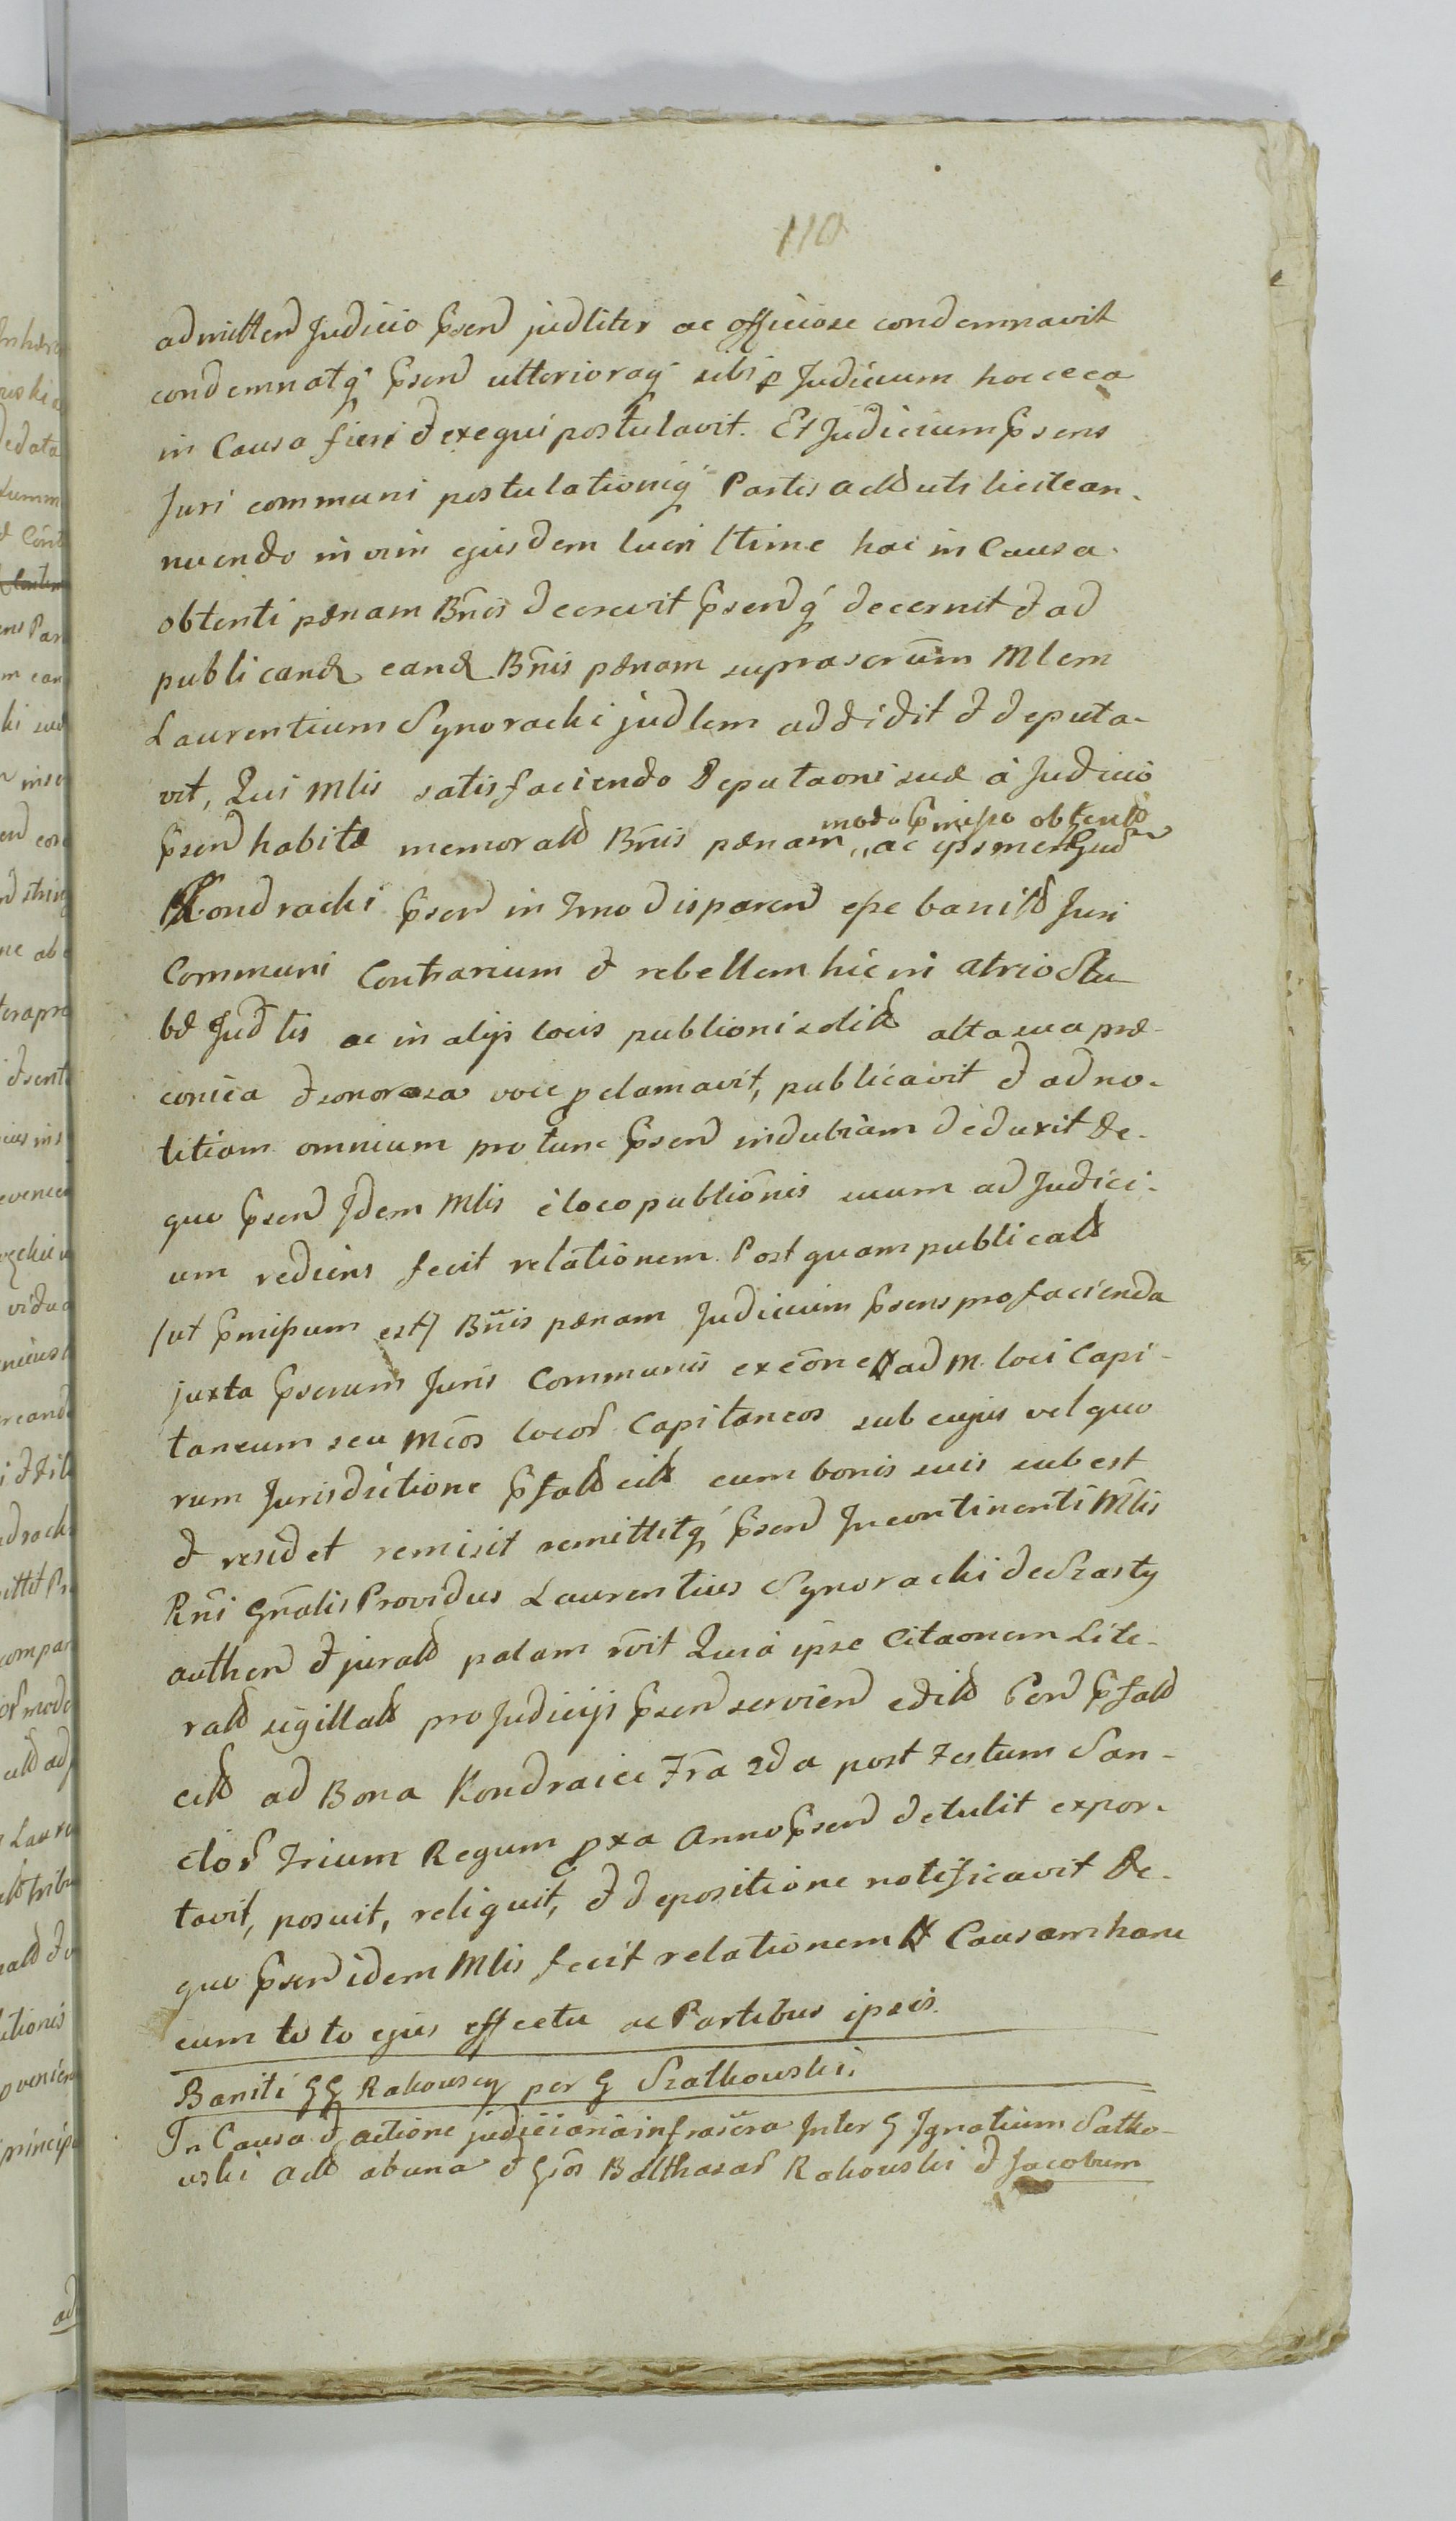 110
admitten Judicio Psen judliter ac officiose condemnavit
condemnatq Psen ulterioraq sibi p Judicium hocce ea
in Causa fieri & exequi postulavit. Et Judicium Psens
Juri communi postulationiq Partis actt uts licite an-
nuendo in vim ejusdem lucri ltime hac in Causa
obtenti pænam Bnis decrevit Psendq decernit & ad
publicand eand Bnis pænam suprascrum Mlem
Laurentium Synoracki judlem addidit & deputa-
vit, Qui Mlis satisfaciendo Deputaoni suæ à Judicio
modo Pmisso obtentt
Psen habitæ memoratt Bnis pænam ,, ac ipsmet
Kondracki Psen in Trno disparen esse banitt Juri
Communi Contrarium & rebellem hic in atrio Stu
bæ Judlis ac in alijs locis publioni solitt alta sua præ-
conica & sonorosa voce pclamavit, publicavit & ad no-
titiam omnium pro tunc Psen indubiam deduxit De-
quo Psen Idem Mlis è loco publionis suum ad Judici-
um rediens fecit relationem. Post quam publicatt
/ut Pmissum est/ Bnis pænam Judicium Psens pro facienda
juxta Pscrum Juris Communis execone ad M. loci Capi-
taneum seu Mcos locor Capitaneos sub cujus vel quo
rum Jurisdictione Pfatt citt cum bonis suis subest
& residet remisit remittitq Psen Incontinenti Mlis
Rni Gnalis Providus Laurentius Synoracki de Szasty
authen & juratt palam rvit Quia ipse Citaonem Lite-
ratt sigillatt pro Judicijs Psen servien editt Pen Pfatt
citt ad Bona Kondraice Fra 2da post Festum San-
ctor Trium Regum pxa Anno Psen detulit expor-
tavit, posuit, reliquit, & depositione notificavit De-
quo Psen idem Mlis fecit relationem Causam hanc
cum toto ejus effectu ac Partibus ipsis.
Baniti GG Rakouscy per G Szatkouski.
In Causa & actione judiciaria infrascra Inter G Ignatium Satko-
uski actt ab una & Gos Balthasar Rakouski & Jacobum